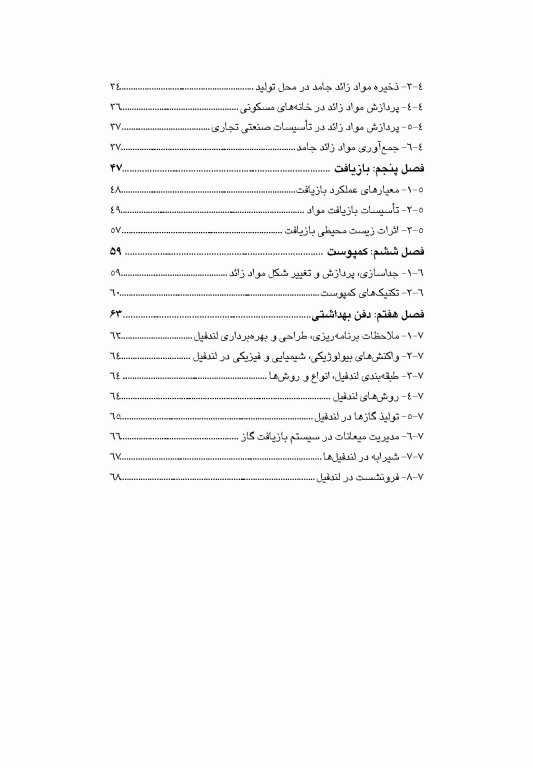 ۴-۳- ذخیره مواد زائد جامد در محل تولید ۳۴
۴-۴- پردازش مواد زائد در خانه‌های مسکونی ۳۶
۴-۵- پردازش مواد زائد در تأسیسات صنعتی تجاری ۳۷
۴-۶- جمع‌آوری مواد زائد جامد ۳۷
فصل پنجم: بازیافت ۴۷
۵-۱- معیارهای عملکرد بازیافت ۴۸
۵-۲- تأسیسات بازیافت مواد ۴۹
۵-۲- اثرات زیست محیطی بازیافت ۵۷
فصل ششم: کمپوست ۵۹
۶-۱- جداسازی، پردازش و تغییر شکل مواد زائد ۵۹
۶-۲- تکنیک‌های کمپوست ۶۰
فصل هفتم: دفن بهداشتی ۶۳
۷-۱- ملاحظات برنامه‌ریزی، طراحی و بهره‌برداری لندفیل ۶۳
۷-۲- واکنش‌های بیولوژیکی، شیمیایی و فیزیکی در لندفیل ۶۴
۷-۳- طبقه‌بندی لندفیل، انواع و روش‌ها ۶۴
۷-۴- روش‌های لندفیل ۶۴
۷-۵- تولیذ گازها در لندفیل ۶۵
۷-۶- مدیریت میعانات در سیستم بازیافت گاز ۶۶
۷-۷- شیرابه در لندفیل‌ها ۶۷
۷-۸- فرونشست در لندفیل ۶۸